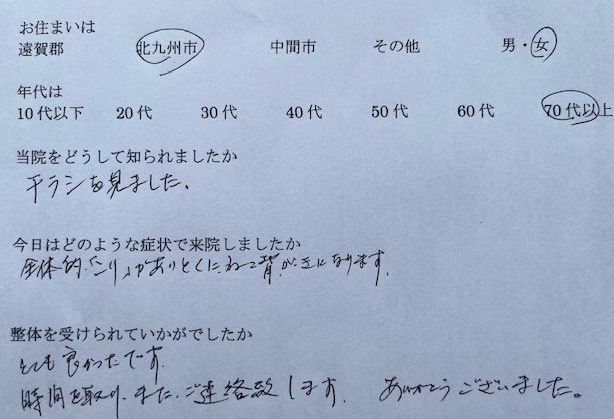 お住まいは
遠賀郡 北九州市 中間市 その他 男・女
年代は
10代以下 20代 30代 40代 50代 60代 70代以上
当院をどうして知られましたか
チラシを見ました。
今日はどのような症状で来院しましたか
全体的「こり」がありとくに、ねこ背が気になります。
整体を受けられていかがでしたか
とても良かったです
時間を取り、また、ご連絡致します。 ありがとうございました。